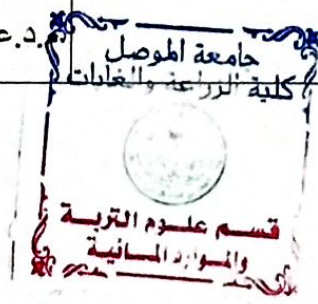 د.ع.
جامعة الموصل
كلية الزراعة والغابات
قسم علوم التربة
والموارد المائية